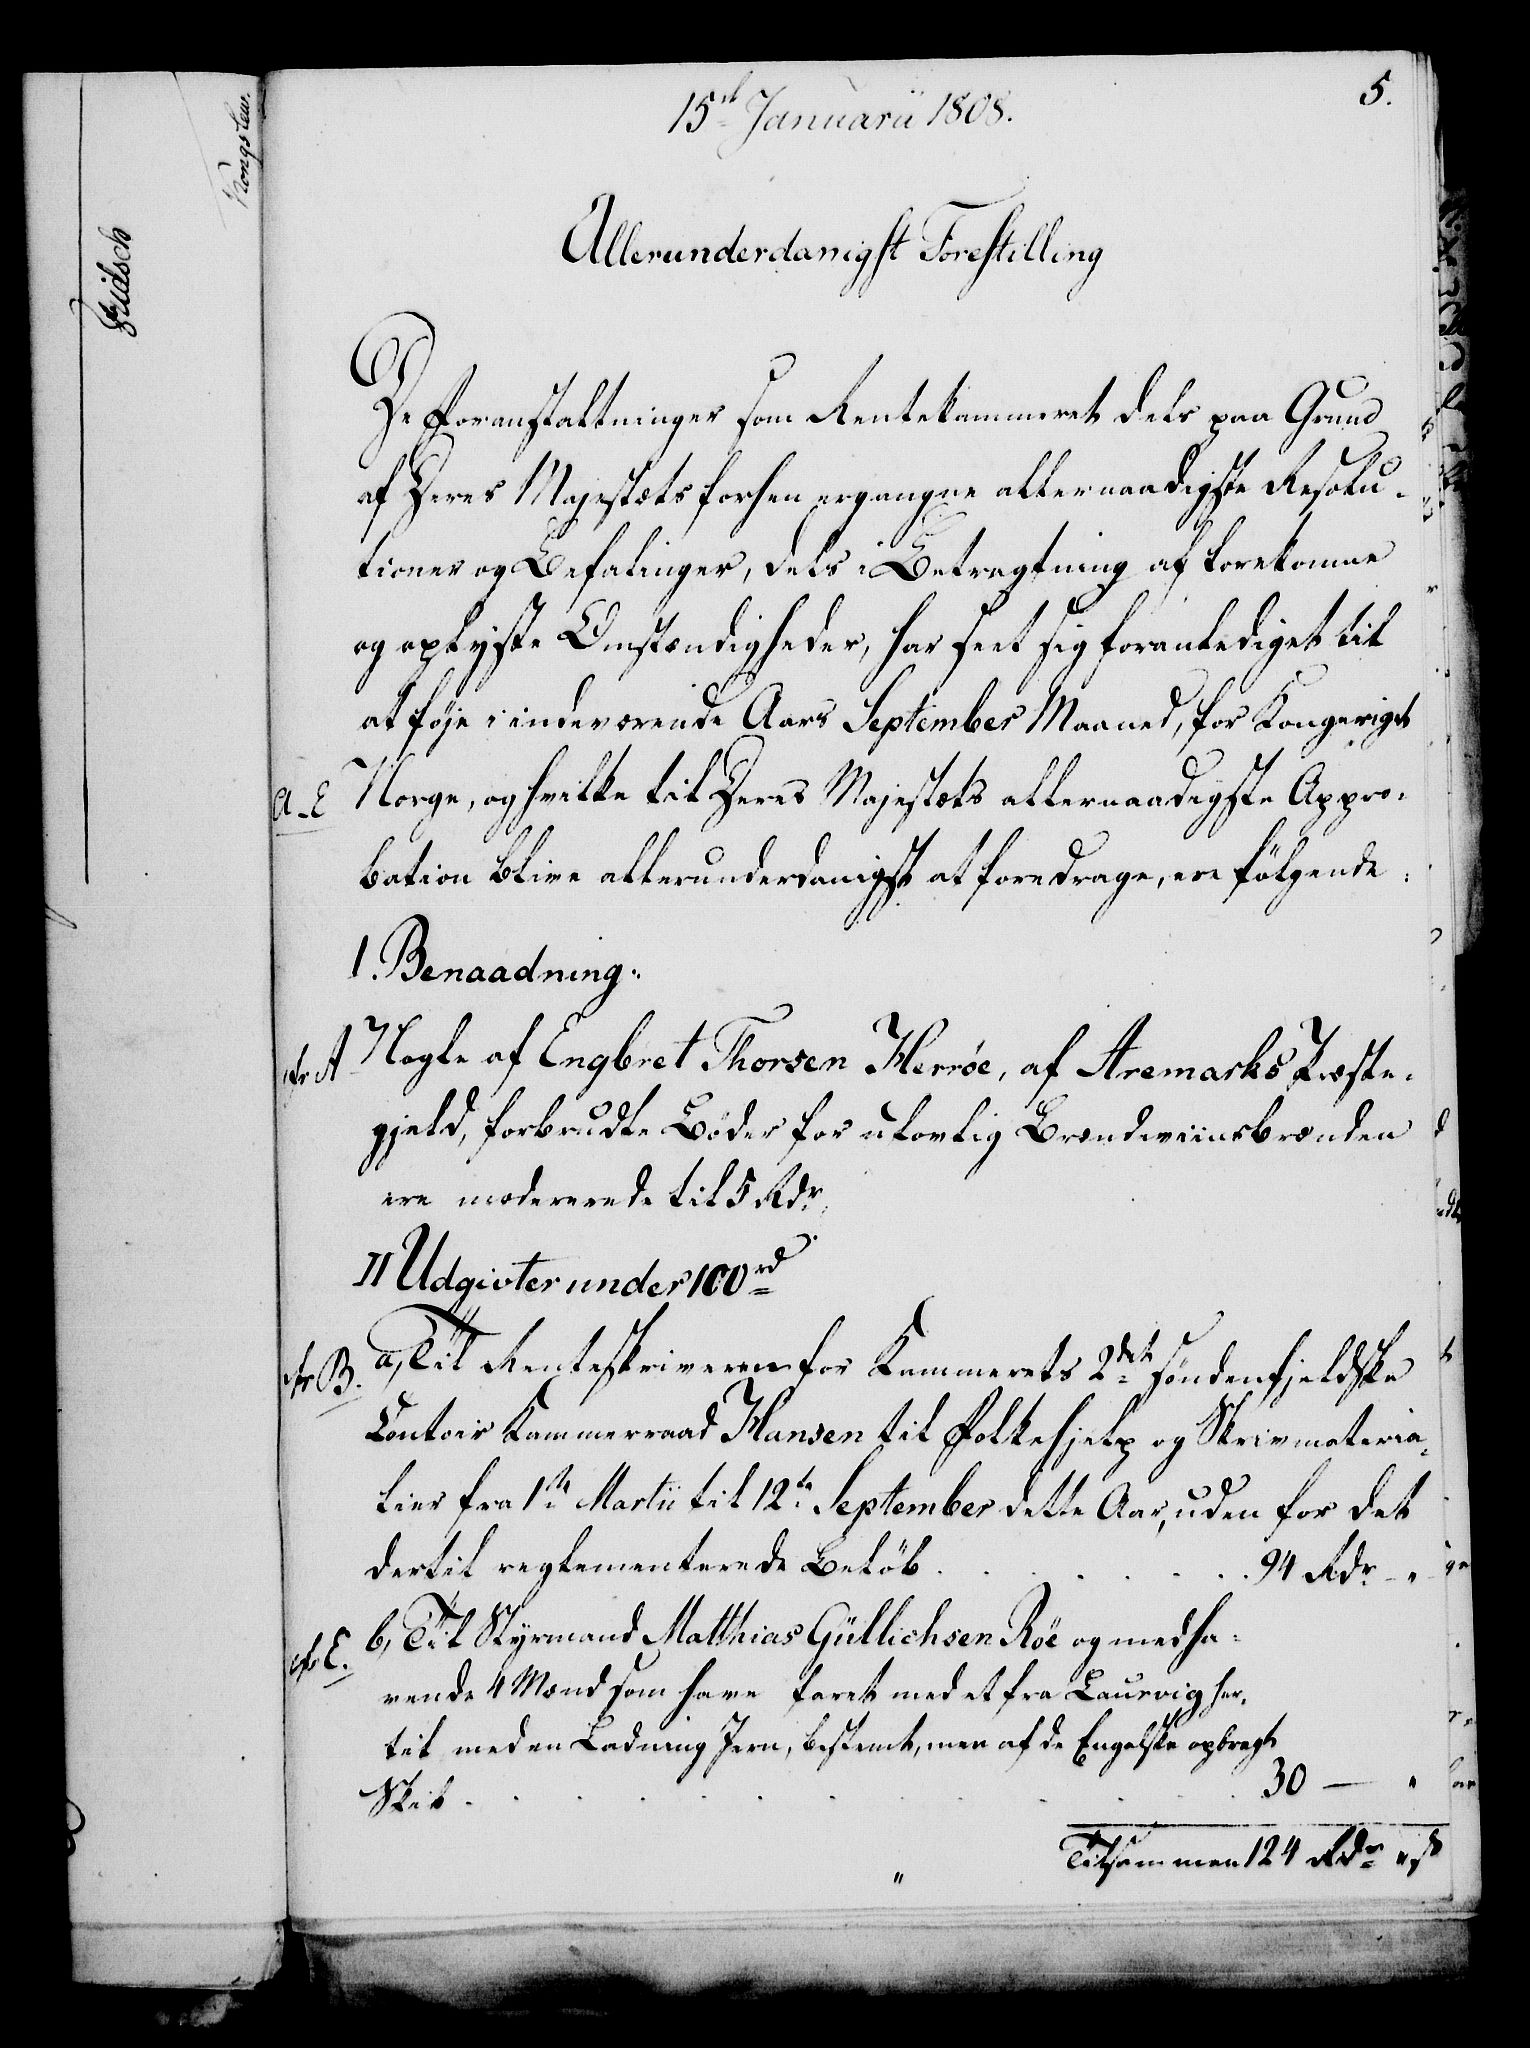 Kongslew.
Fridsch
5.
15de Januarii 1808.
Allerunderdanigst Forestilling
De Foranstaltninger som Rentekammeret dels paa Grund
af Deres Majestæts forhen ergangne allernaadigste Resolu-
tioner og Befalinger, dels i Betragtning af forekomne
og oplyste Omstændigheder, har seet sig foranlediget til
at føje i indeværende Aars September Maaned, for Kongeriget
A-E Norge, og hvilke til Deres Majestæts allernaadigste Appro-
bation blive allerunderdanigst at foredrage, ere følgende:
I. Benaadning.
cfr A Nogle af Engbret Thorsen Herrøe, af Aremarks Præste-
gjeld, forbrudte Bøder for ulovlig Brændeviinsbrænden
ere modererede til 5 Rdr.
II Udgivter under 100 rd
cfr B. a, Til Renteskriveren for Kammerets 2det søndenfjeldske
Contoir Kammerraad Hansen til Folkehjelp og Skrivmateria-
lier fra 1ste Martii til 12te September dette Aar, uden for det
dertil reglementerede Beløb . . . . . . 94 Rdr - "
cfr E. b, Til Styrmand Matthias Güllichsen Röe og medha-
vende 4 Mænd som have faret med et fra Laurvig her-
til med en Ladning Jern, bestemt, men af de Engelske opbragt
Skib . . . . . . . . . . . 30 — "
Tilsammen 124 Rdr " s
"